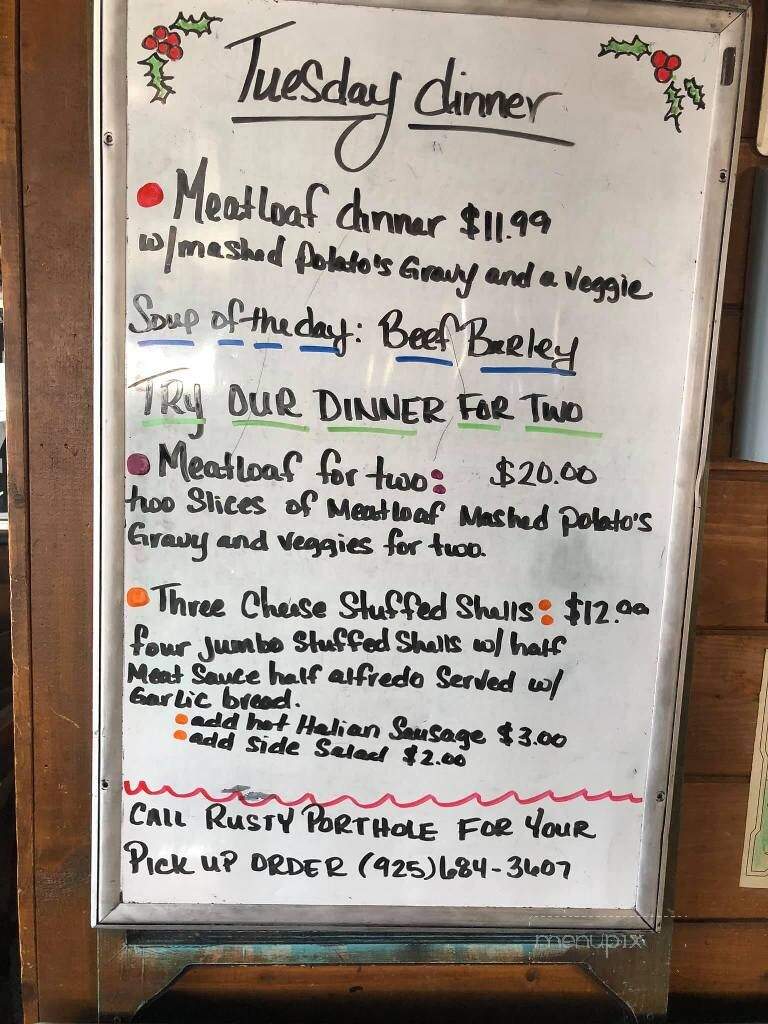 Tuesday dinner
Meatloaf dinner $11.99
w/mashed potato's Gravy and a Veggie
Soup of the day: Beef Barley
TRY OUR DINNER FOR TWO
Meatloaf for two: $20.00
two Slices of Meatloaf Mashed potato's
Gravy and veggies for two.
Three Cheese Stuffed Shells: $12.99
four jumbo Stuffed Shells w/ half
Meat Sauce half alfredo Served w/
Garlic bread.
add hot Italian Sausage $3.00
add side Salad $2.00
CALL RUSTY PORTHOLE FOR YOUR
Pick UP ORDER (925)684-3607
menupix